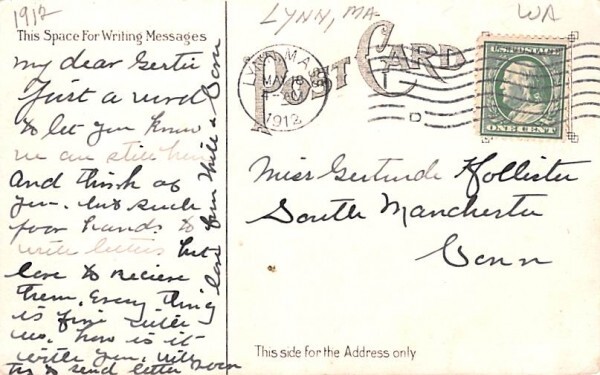 1912
LYNN, MA
WA
This Space For Writing Messages
POST CARD
LYNN, MASS
MAY 18
1912
D
U.S. POSTAGE
ONE CENT
my dear Gertie
Just a word
to let you know
we are still here
And think of
you. but such
poor hands to
write letters but
love to recieve
them. Every thing
is fine with
us. how is it
with you, will
try to send letter soon
love from Will &
Miss Gertrude Hollister
South Manchester
Conn
This side for the Address only